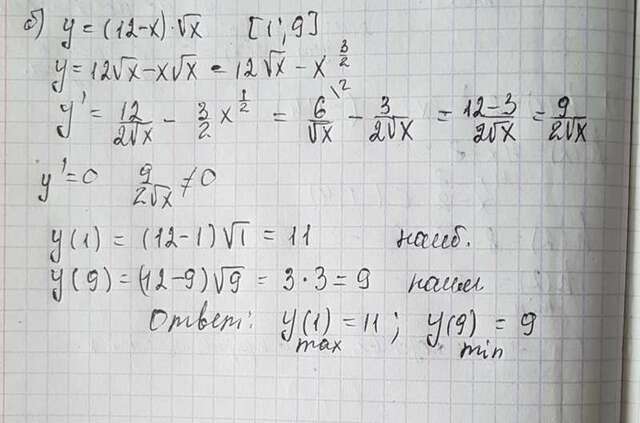 б) y = (12-x)·√x [1; 9]
y = 12√x - x√x = 12√x - x^(3/2)
y' = 12/(2√x) - 3/2 x^(1/2) = 6/√x \2 - 3/(2√x) = (12-3)/(2√x) = 9/(2√x)
y' = 0 9/(2√x) ≠ 0
y(1) = (12-1)√1 = 11 наиб.
y(9) = (12-9)√9 = 3·3 = 9 наим
Ответ: y(1) = 11; y(9) = 9
max min